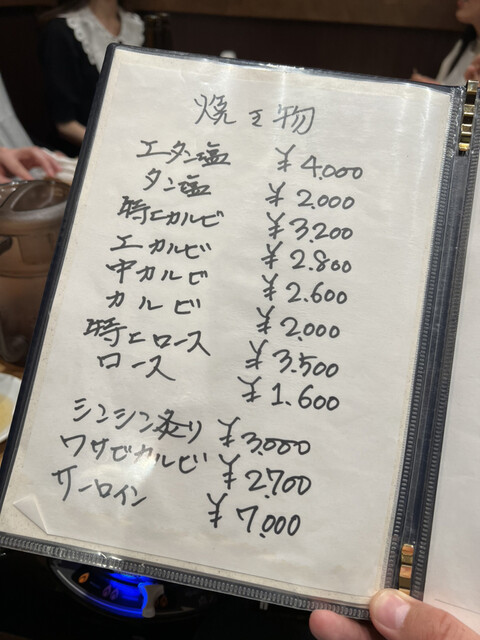 焼き物
上タン塩 ¥4.000
タン塩 ¥2.000
特上カルビ ¥3.200
上カルビ ¥2.800
中カルビ ¥2.600
カルビ ¥2.000
特上ロース ¥3.500
ロース ¥1.600
シンシン炙り ¥3.000
ワサビカルビ ¥2.700
サーロイン ¥7.000